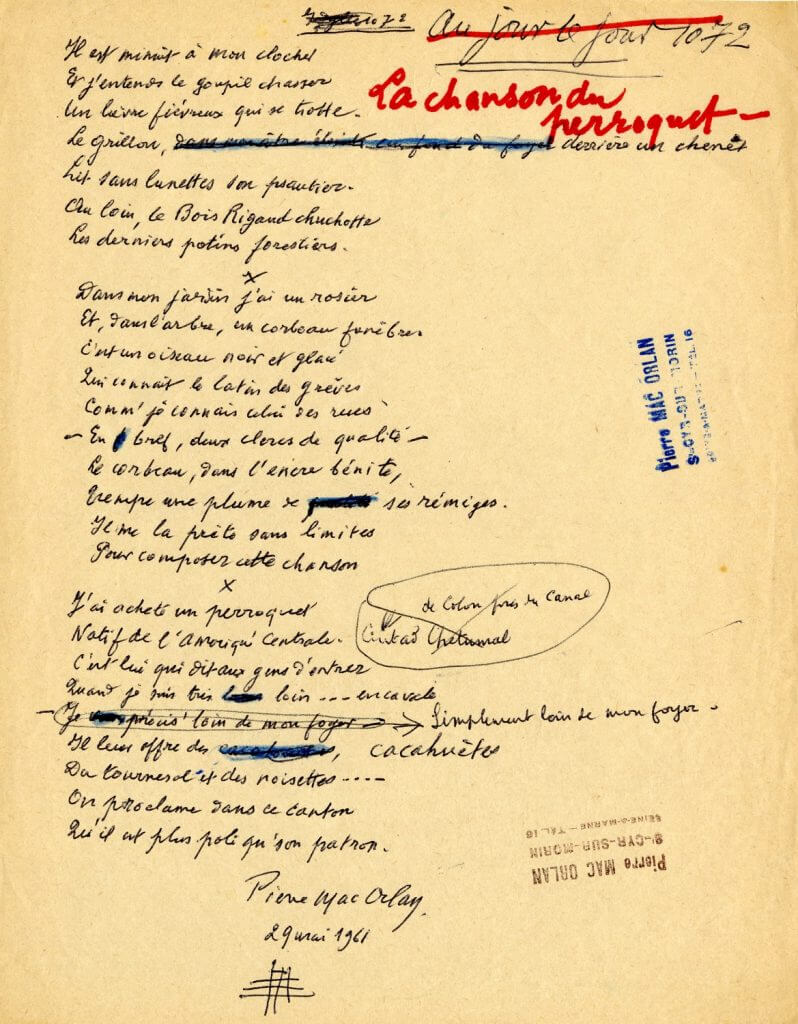 1072
Au jour le jour 1072
La chanson du
perroquet —
Il est minuit à mon clocher
Et j'entends le goupil chasser
Un lièvre fiévreux qui se trotte.
Le grillon, au fond du foyer derrière un chenêt
Lit sans lunettes son psautier.
Au loin, le Bois Rigaud chuchotte
Les derniers potins forestiers.
x
Dans mon jardin j'ai un rosier
Et, dans l'arbre, un corbeau funèbre
C'est un oiseau noir et glacé
Qui connait le latin des grèves
Comm' je connais celui des rues
— En bref, deux clercs de qualité —
Le corbeau, dans l'encre bénite,
Trempe une plume de ses rémiges.
Il me la prête sans limites
Pour composer cette chanson
x
J'ai acheté un perroquet
Natif de l'Amériqu' Centrale.
de Colon près du Canal
Ciudad Chetumal
C'est lui qui dit aux gens d'entrer
Quand je suis très loin --- encavalé
Je précis' loin de mon foyer → Simplement loin de mon foyer -
Il leur offre des, cacahuètes
Du tournesol et des noisettes ----
On proclame dans ce canton
Qu'il est plus poli qu'son patron.
Pierre Mac Orlan
29 mai 1961
Pierre MAC ORLAN
St-CYR-SUR-MORIN
SEINE-&-MARNE - TÉL. 16
Pierre MAC ORLAN
St-CYR-SUR-MORIN
SEINE-&-MARNE - TÉL. 16